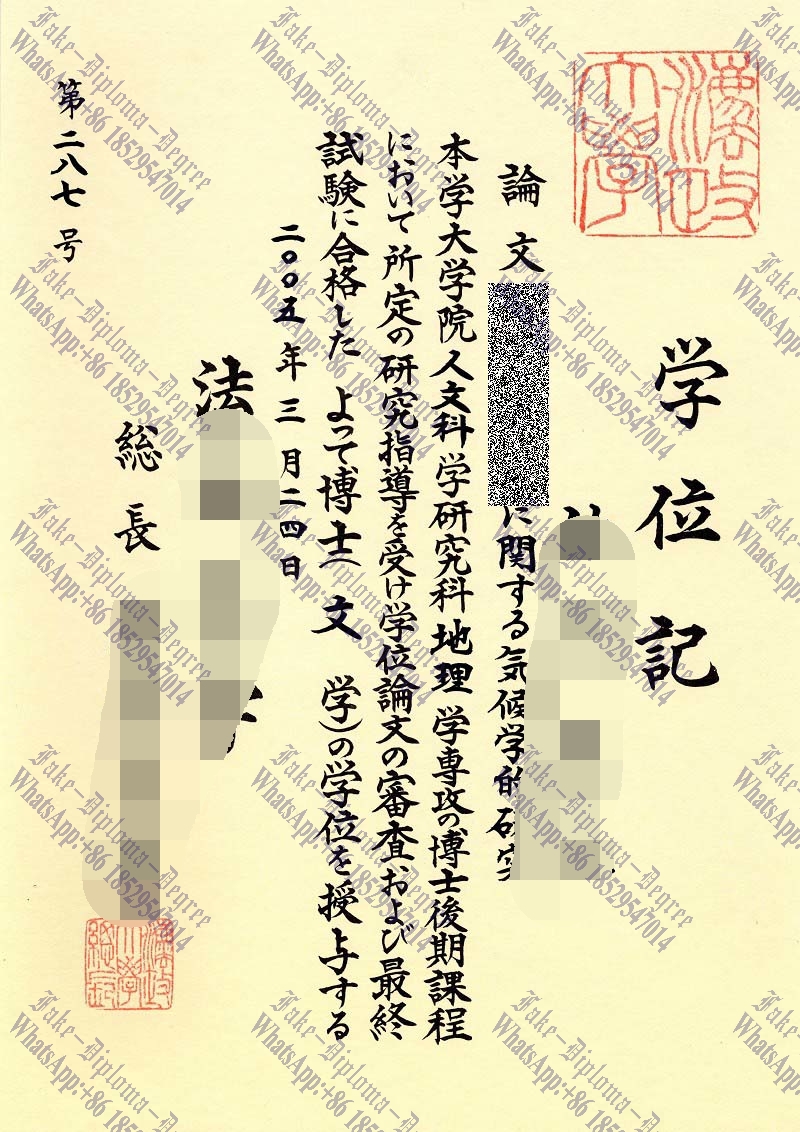 法政
大学
学位記
論文
に関する気候学的研究
本学大学院人文科学研究科地理学専攻の博士後期課程
において所定の研究指導を受け学位論文の審査および最終
試験に合格した よって博士(文 学)の学位を授与する
二〇〇五年三月二四日
法
総長
法政
大学
総長
第二八七号
Fake-Diploma-Degree
WhatsApp:+86 18529547014